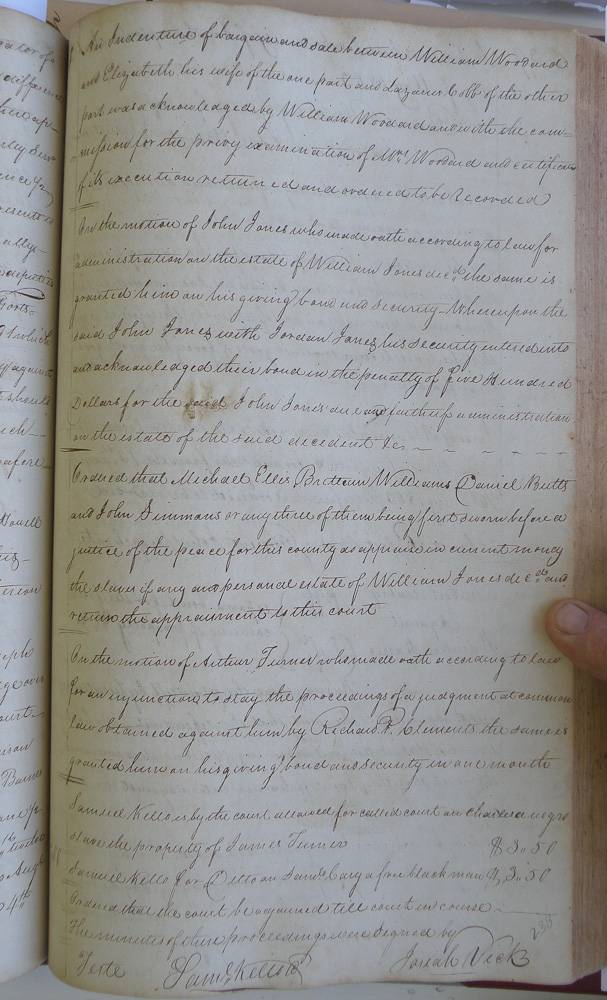 An Indenture of bargain and sale between William Woodard
and Elizabeth his wife of the one part and Lazarus Cobb of the other
part was acknowledged by William Woodard and with the com-
mission for the privy examination of Mrs Woodard and certificate
of its execution returned and ordered to be recorded
On the motion of John Jones who made oath according to law for
administration on the estate of William Jones decd the same is
granted him on his giving bond and security - Whereupon the
said John Jones with Jordan Jones his security entered into
and acknowledged their bond in the penalty of five Hundred
Dollars for the said John Jones' due and faithful administration
on the estate of the said decedent &c
Ordered that Michael Ellis Britain Williams Daniel Butts
and John Simmons or any three of them being first sworn before a
justice of the peace for this county do appraise in current money
the slaves if any and personal estate of William Jones decd and
return the appraisment to this court
On the motion of Arthur Turner who made oath according to law
for an injunction to stay the proceedings of a judgment at common
law obtained against him by Richard P. Clements the same is
granted him on his giving bond and security in one month
Samuel Kello is by the court allowed for called court on Charles a negro
slave the property of James Turner $3.50
Samuel Kello for Ditto on Saml Cary a free black man $3.50
Ordered that the court be adjourned till court in course
The minutes of these proceedings were signed by
Teste Saml Kello Josiah Vick